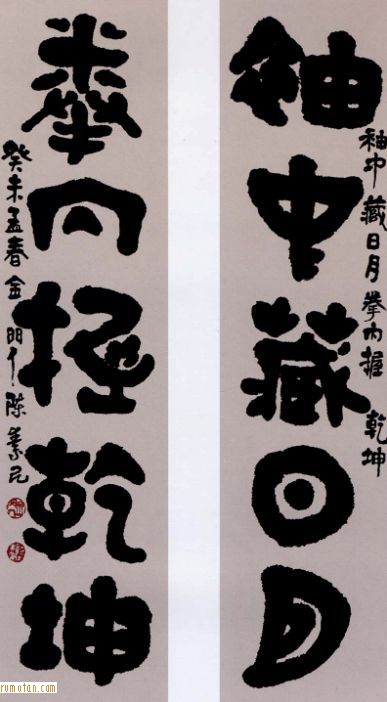 袖中藏日月
袖中藏日月拳內握乾坤
拳內握乾坤
癸未孟春金門人陳美元
rumotan.com